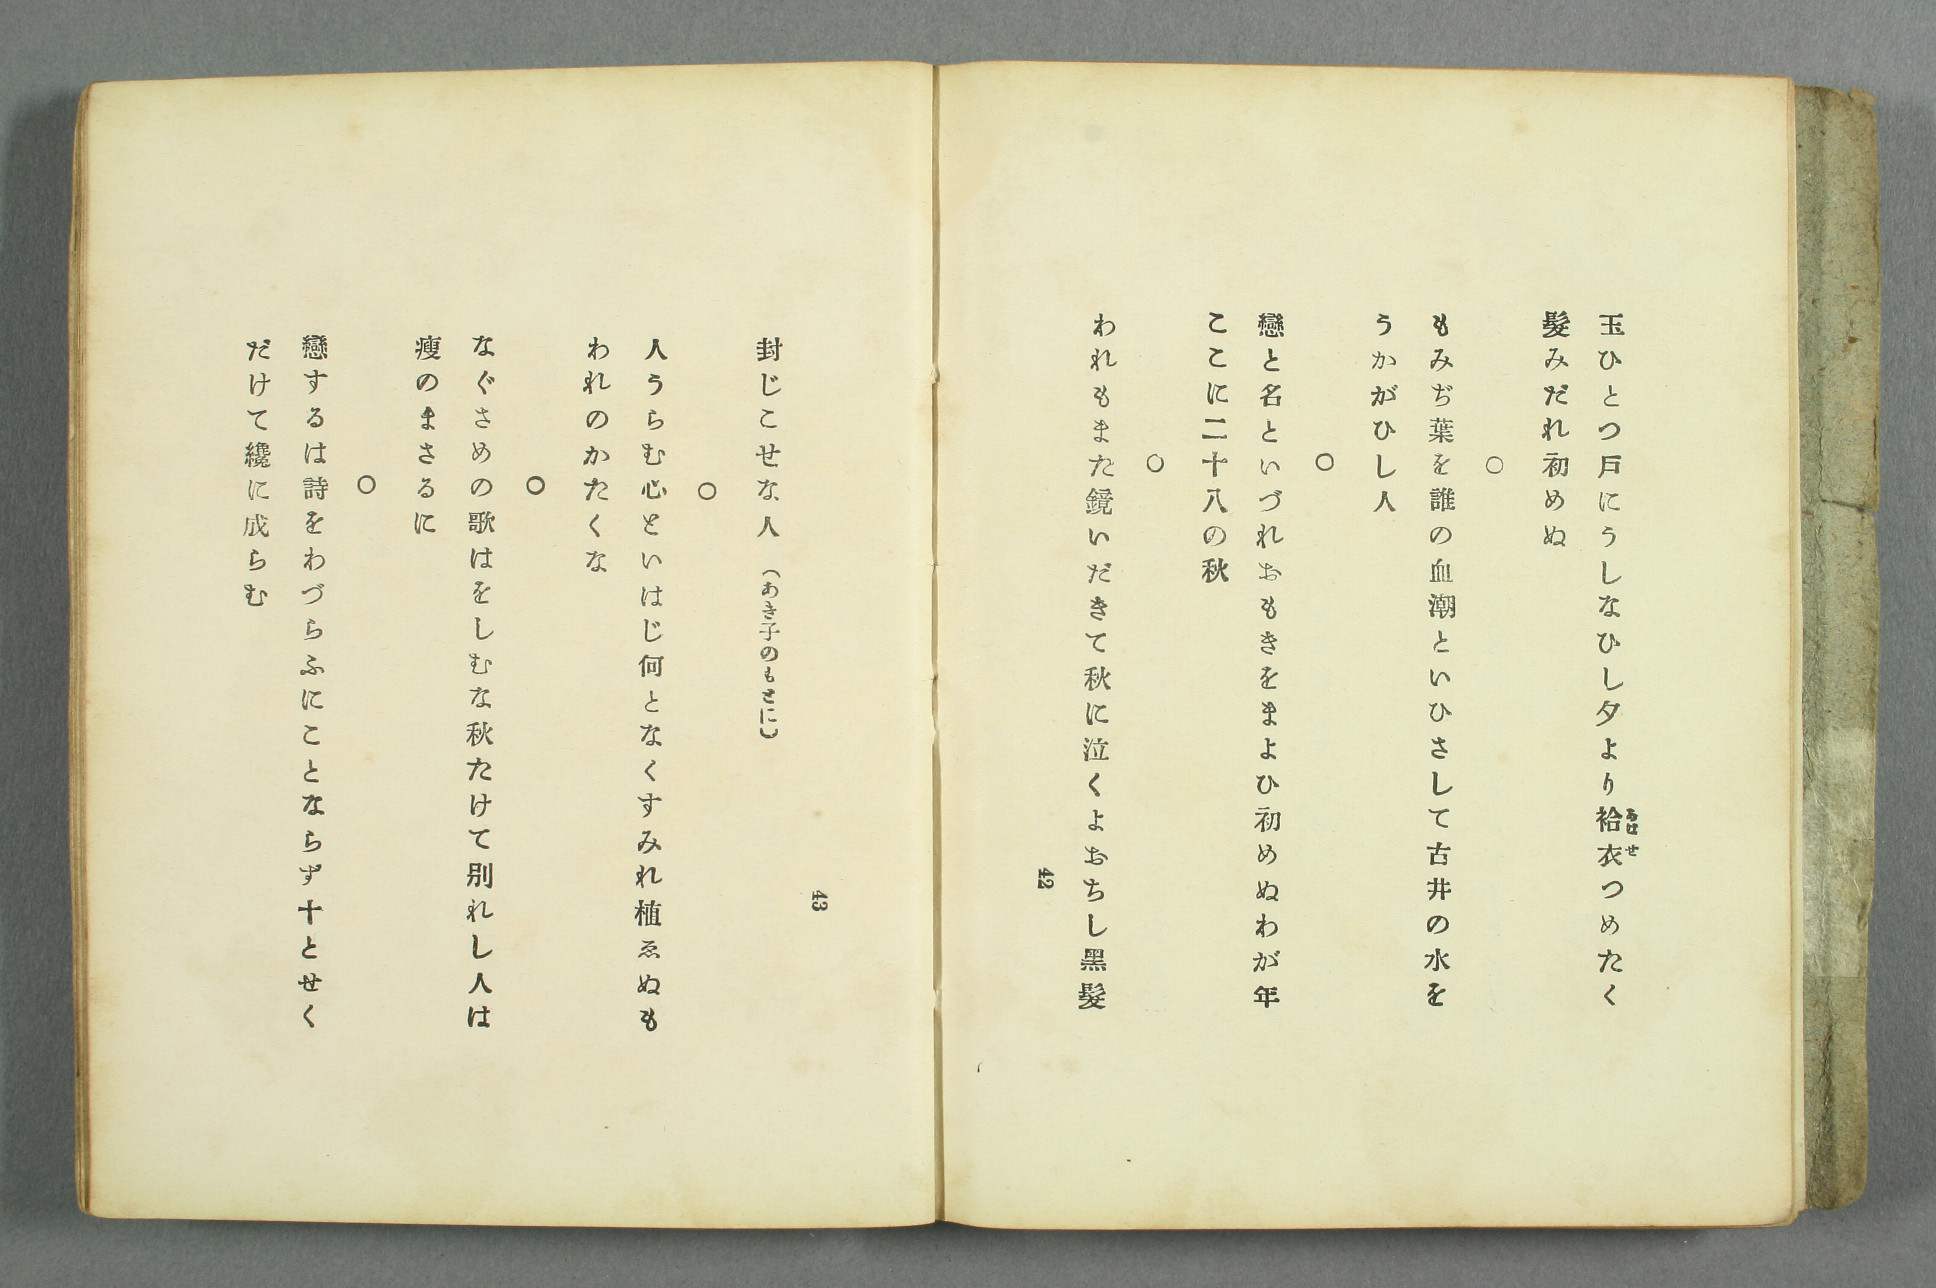 玉ひとつ戸にうしなひし夕より袷衣つめたく
あはせ
髮みだれ初めぬ
○
もみぢ葉を誰の血潮といひさして古井の水を
うかがひし人
○
戀と名といづれおもきをまよひ初めぬわが年
ここに二十八の秋
○
われもまた鏡いだきて秋に泣くよおちし黑髮
42
43
封じこせな人（あき子のもとに）
○
人うらむ心といはじ何となくすみれ植ゑぬも
われのかたくな
○
なぐさめの歌はをしむな秋たけて別れし人は
瘦のまさるに
○
戀するは詩をわづらふにことならず十とせく
だけて纔に成らむ